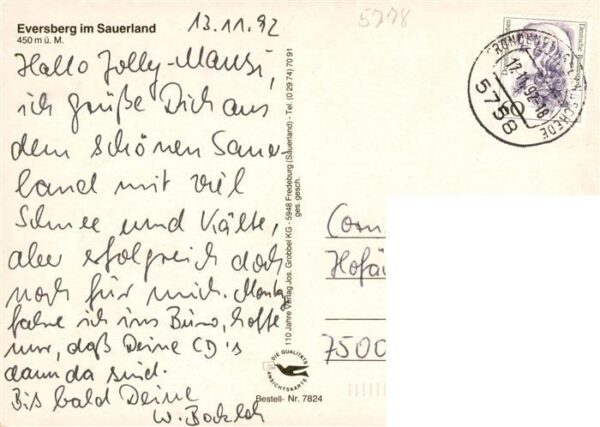 Eversberg im Sauerland
450 m ü. M.
13.11.92
5778
Hallo Jolly-Mausi,
ich grüße Dich aus
dem schönen Sauer-
land mit viel
Schnee und Kälte,
aber erfolgreich doch
noch für mich. Montag
fahre ich ins Büro, hoffe
nur, daß Deine CD's
dann da sind.
Bis bald Deine
W.
110 Jahre Verlag Jos. Grobbel KG - 5948 Fredeburg (Sauerland) - Tel. (0 29 74) 70 91
ges. gesch.
DIE QUALITÄTS
ANSICHTSKARTE
Bestell- Nr. 7824
Deutsche Bundespost
5758
Corn
Hofä
7500